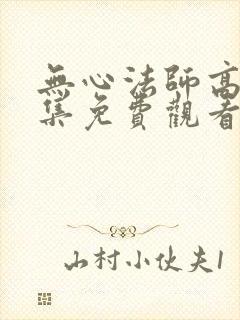 無心法師高
集免費觀看
山村小伙夫1